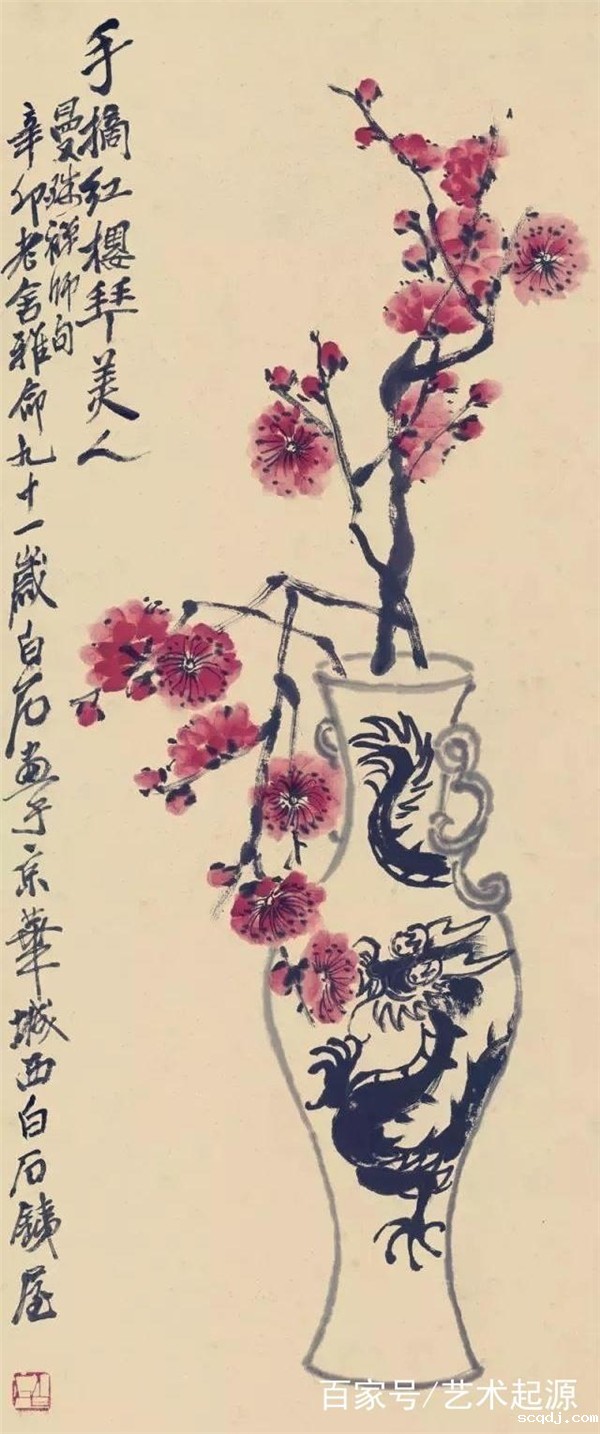 手摘红樱拜美人
曼殊禅师句
辛卯老舍雅命九十一岁白石画于京华城西白石铁屋
百家号/艺术起源
scqdj.com